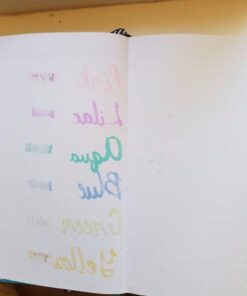 Pink
Lilac
Aqua
Blue
Green
Yellow